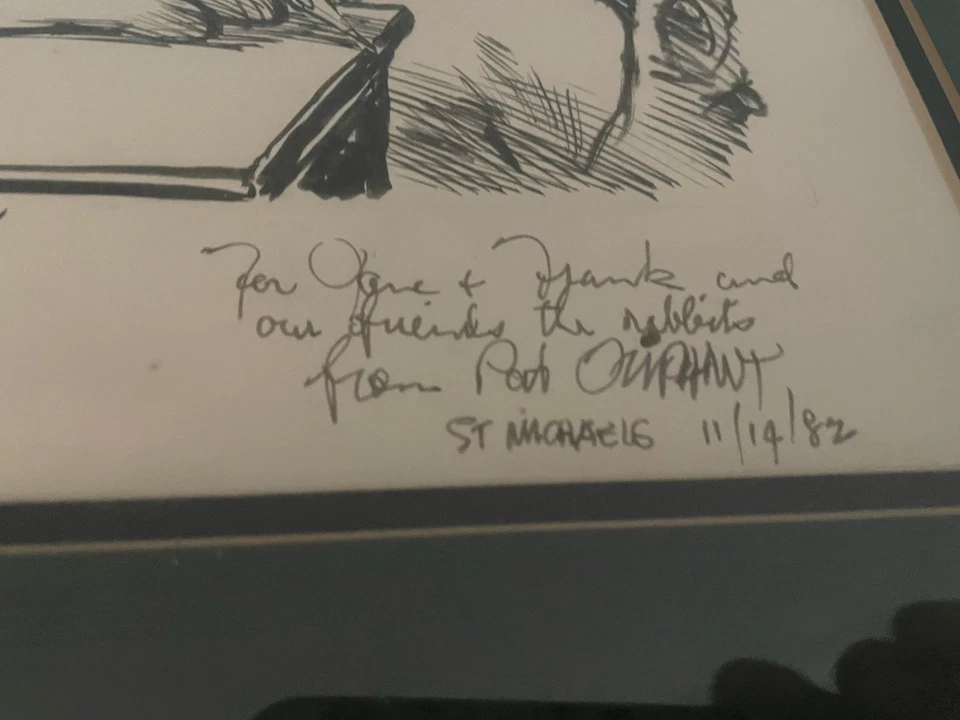 For Jane + Frank and
our friends the rabbits
from Pat OLIPHANT
ST MICHAELS 11/14/82